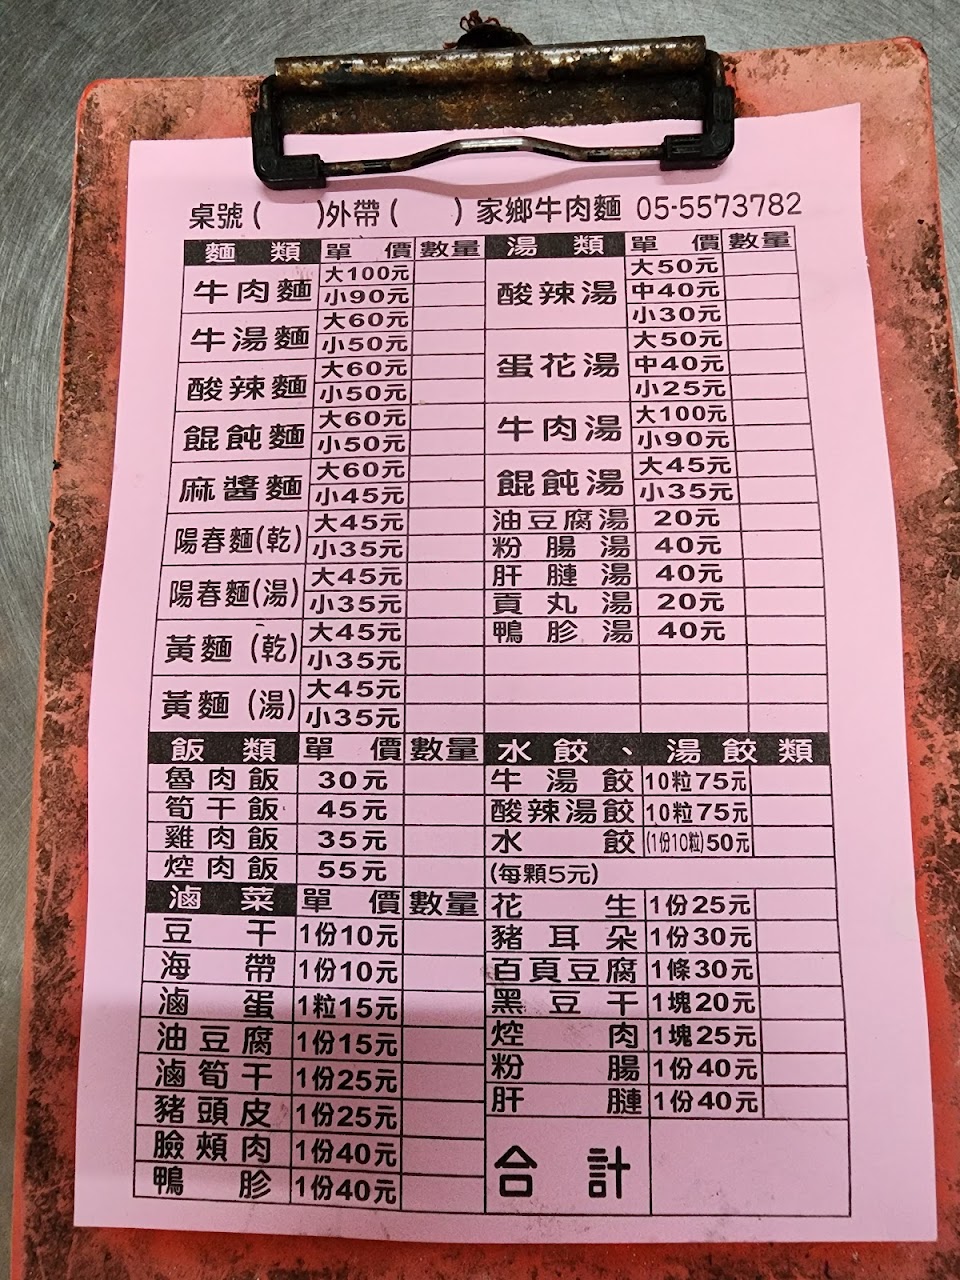 桌號 ( ) 外帶 ( ) 家鄉牛肉麵 05-5573782
麵類 單價 數量 湯類 單價 數量
牛肉麵 大100元 小90元
牛湯麵 大60元 小50元
酸辣麵 大60元 小50元
餛飩麵 大60元 小50元
麻醬麵 大60元 小45元
陽春麵(乾) 大45元 小35元
陽春麵(湯) 大45元 小35元
黃麵 (乾) 大45元 小35元
黃麵 (湯) 大45元 小35元
酸辣湯 大50元 中40元 小30元
蛋花湯 大50元 中40元 小25元
牛肉湯 大100元 小90元
餛飩湯 大45元 小35元
油豆腐湯 20元
粉腸湯 40元
肝腱湯 40元
貢丸湯 20元
鴨胗湯 40元
飯類 單價 數量
魯肉飯 30元
筍干飯 45元
雞肉飯 35元
焢肉飯 55元
水餃、湯餃類
牛湯餃 10粒75元
酸辣湯餃 10粒75元
水餃 (1份10粒)50元
(每顆5元)
滷菜 單價 數量
豆干 1份10元
海帶 1份10元
滷蛋 1粒15元
油豆腐 1份15元
滷筍干 1份25元
豬頭皮 1份25元
臉頰肉 1份40元
鴨胗 1份40元
花生 1份25元
豬耳朵 1份30元
百頁豆腐 1條30元
黑豆干 1塊20元
焢肉 1塊25元
粉腸 1份40元
肝腱 1份40元
合計